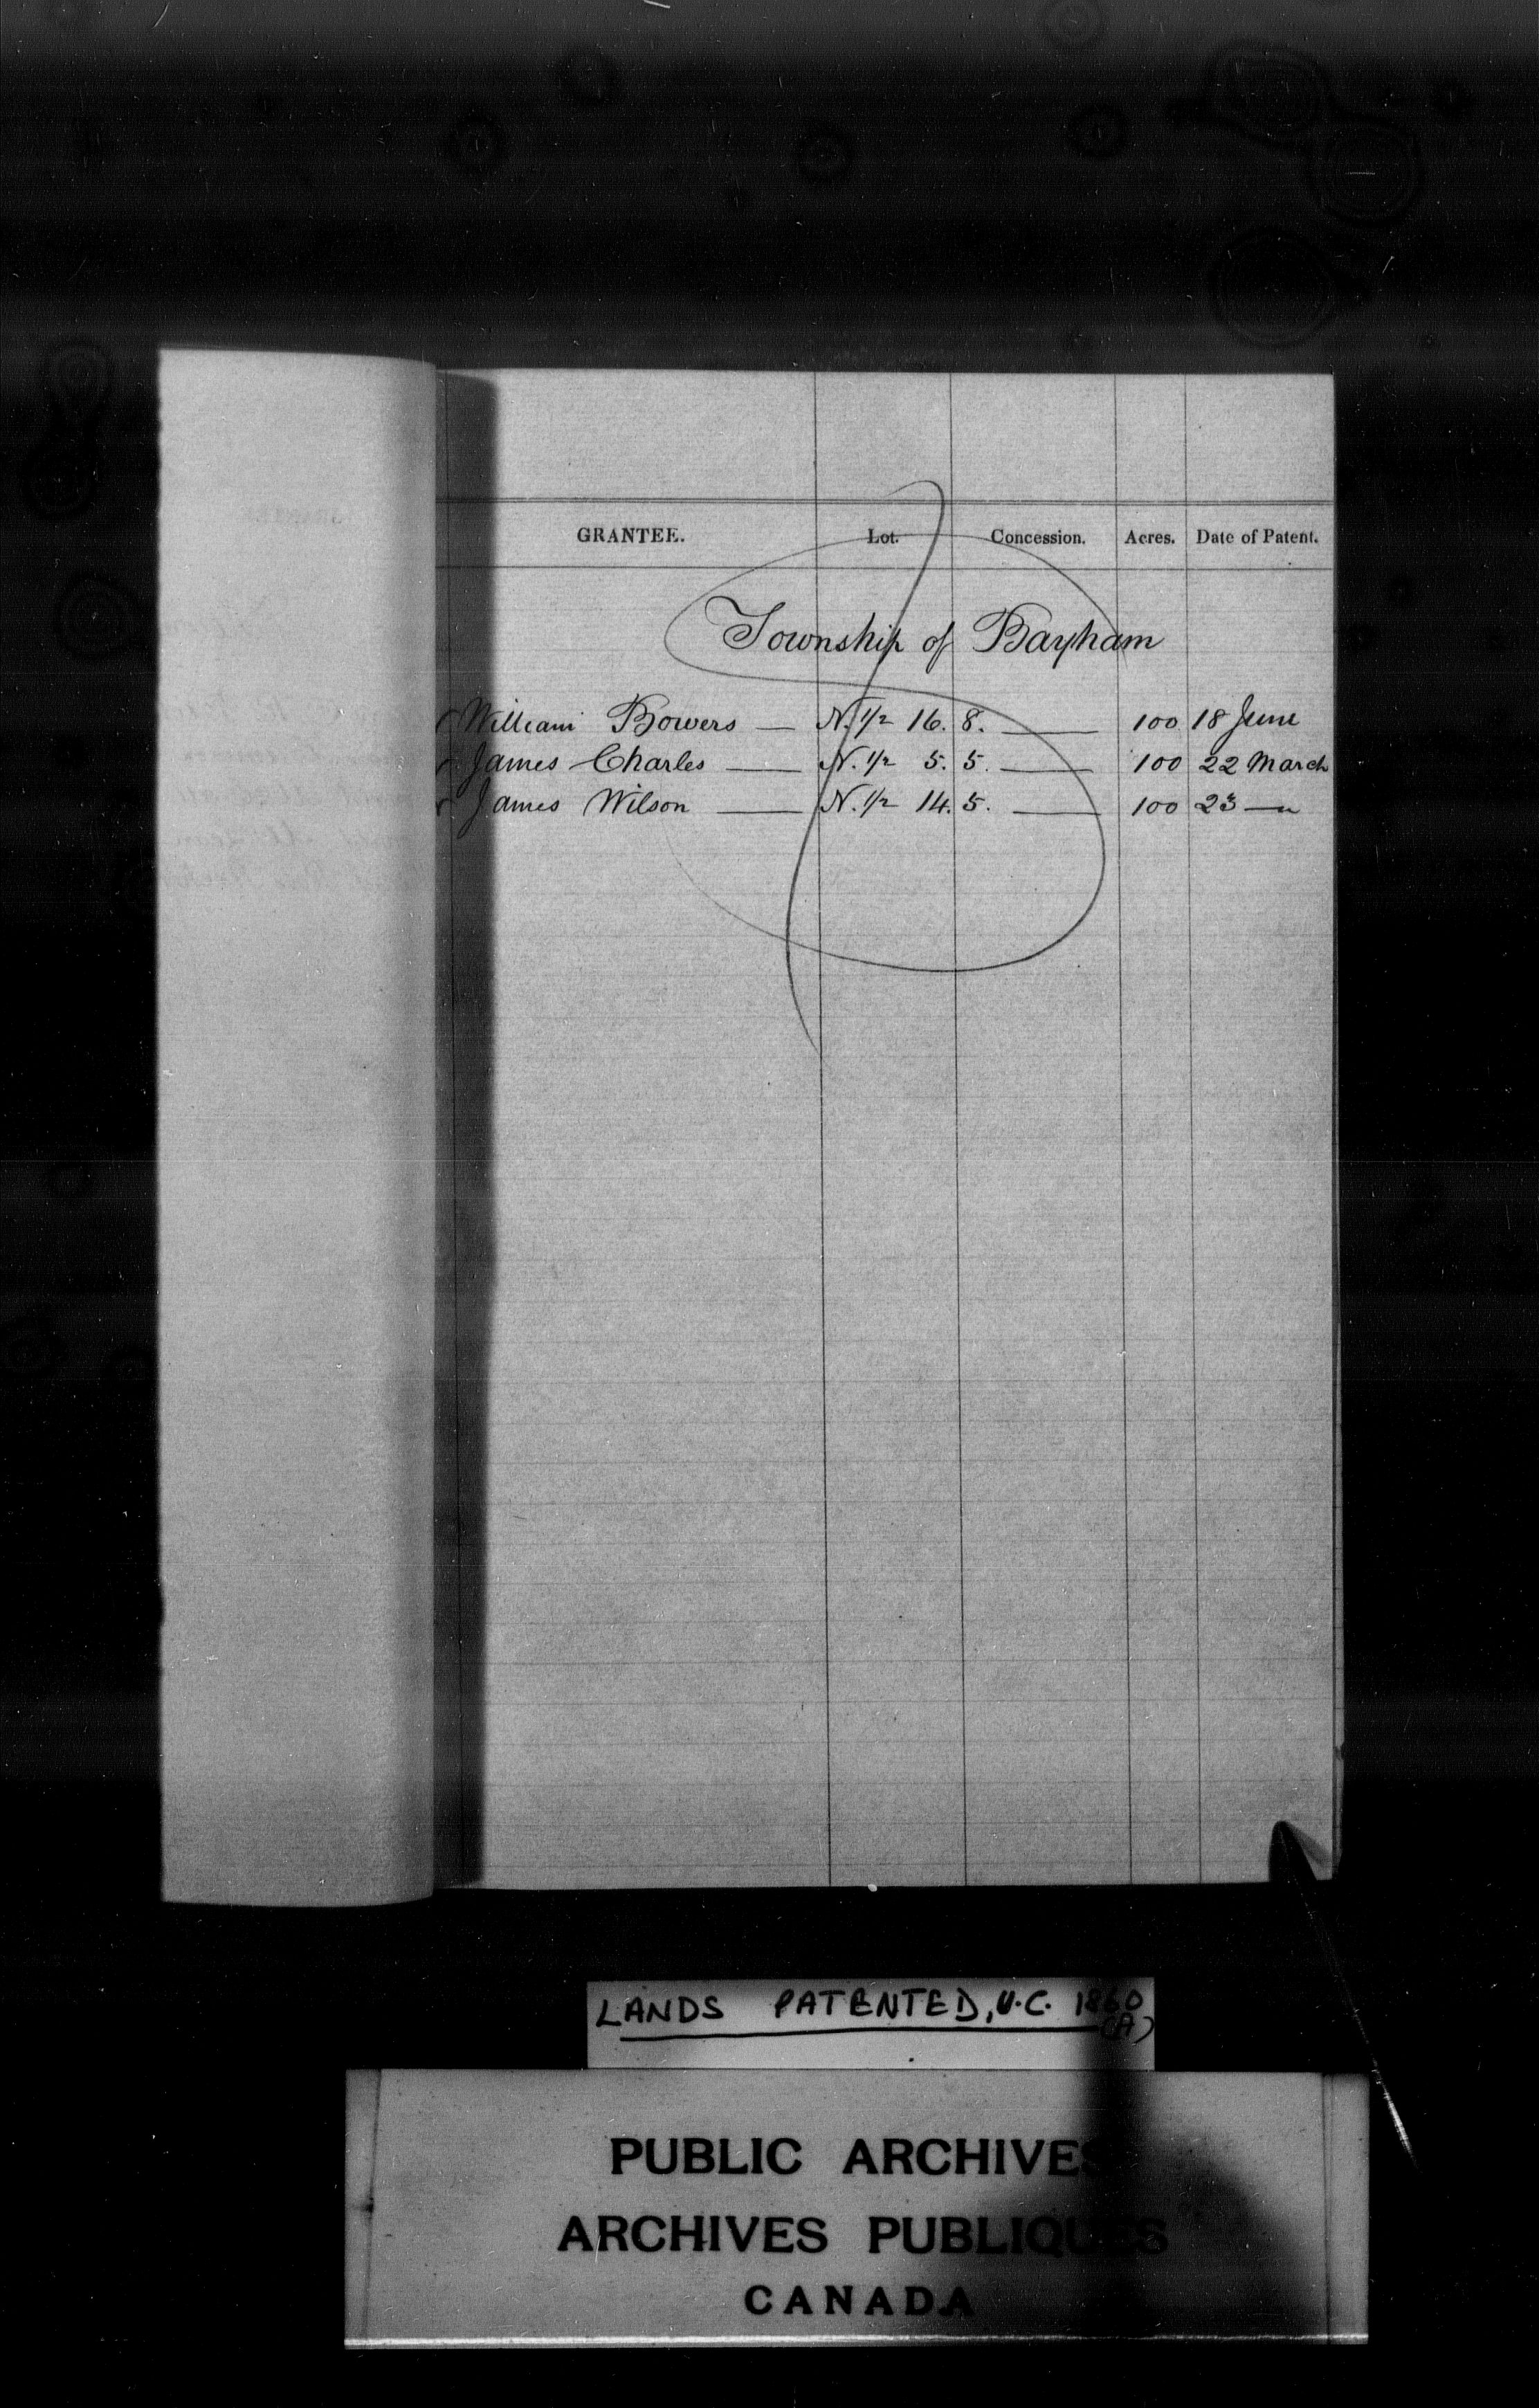 GRANTEE. Lot. Concession. Acres. Date of Patent.
Township of Bayham
William Bowers — N. 1/2 16. 8. — 100 18 June
James Charles — N. 1/2 5. 5. — 100 22 March
James Wilson — N. 1/2 14. 5. — 100 23 — "
LANDS PATENTED, U.C. 1860
(A)
PUBLIC ARCHIVES
ARCHIVES PUBLIQUES
CANADA